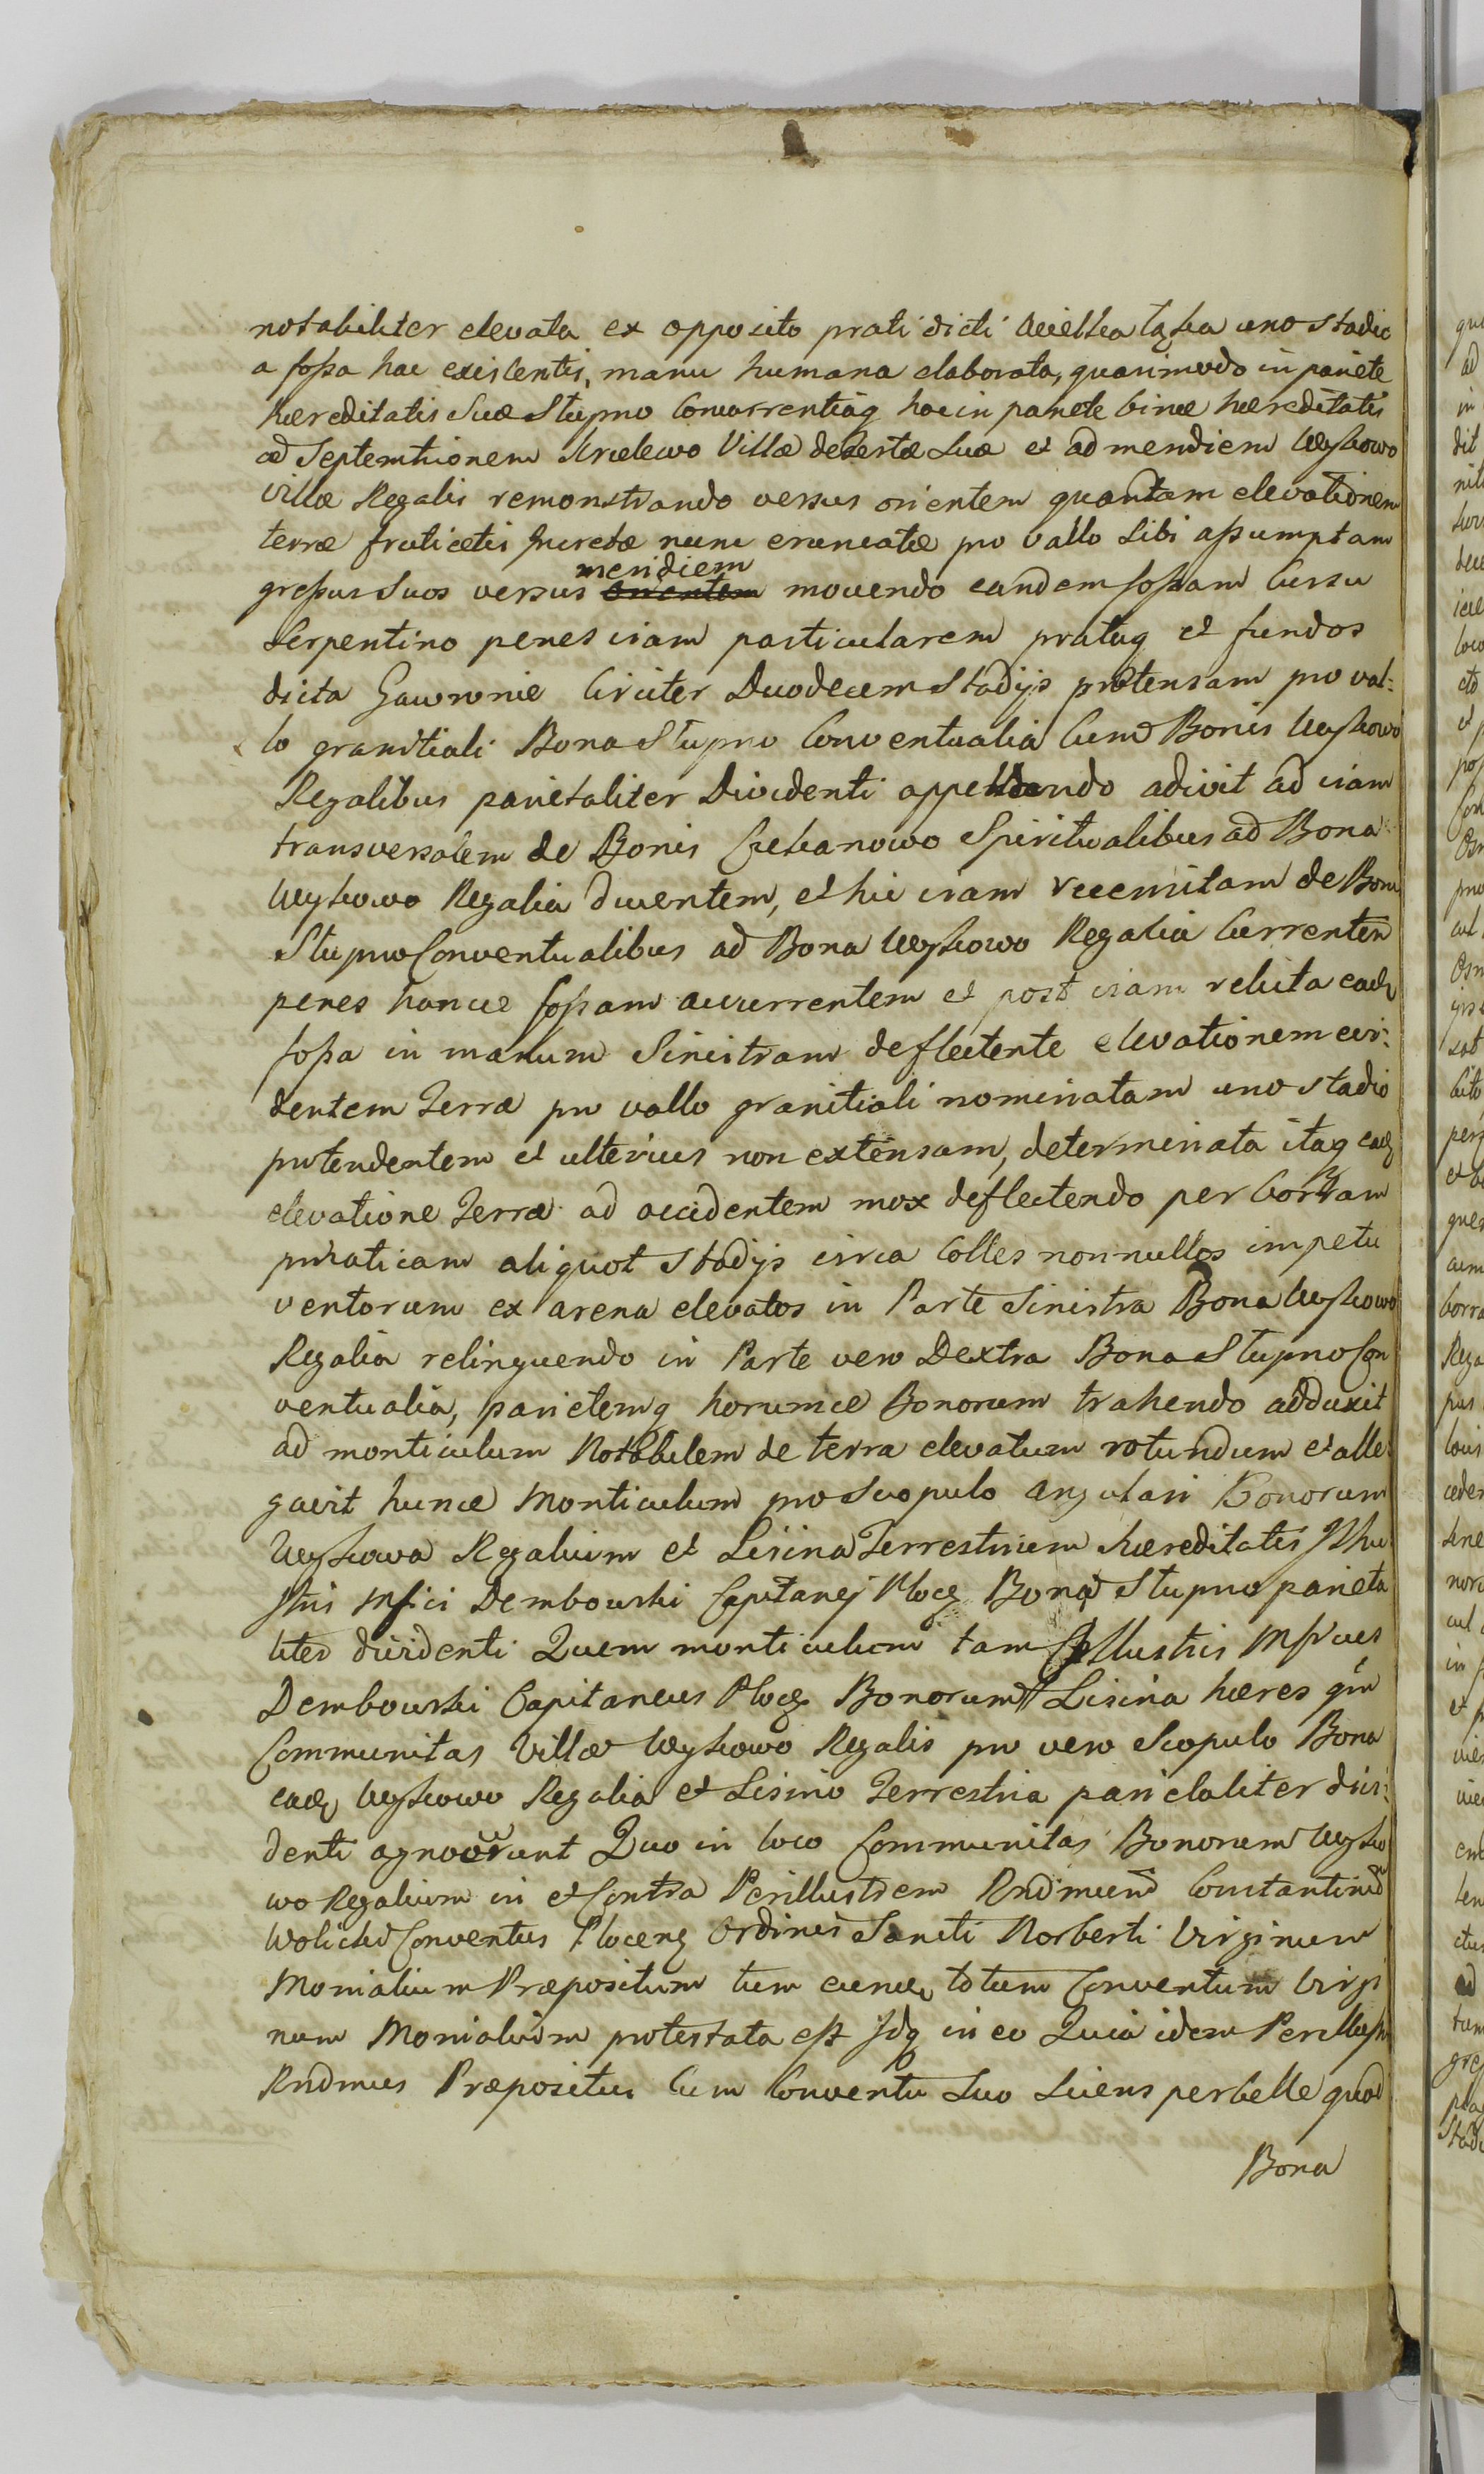 notabiliter elevata ex opposito prati dicti Wielka Łąka uno stadio
a fossa hac existentis, manu humana elaborata, quasimodo in pariete
hæreditatis Suæ Stupno Concurrentiaq hoc in pariete binæ hæreditatis
ad Septemtrionem Krolewo Villæ desertæ Suæ et ad meridiem Wykowo
Villæ Regalis remonstrando versus orientem quantam elevationem
terræ fruticetis nunc eruncatæ pro vallo Sibi assumptam
gressus Suos versus meridiem movendo eandem fossam Cursu
Serpentino penes viam particularem prataq et fundos
dicta Gawronie Circiter Duodecem Stadijs protensam pro val:
lo granitiali Bona Stupno Conventualia Cum Bonis Wykowo
Regalibus parietaliter Dividenti appellando adivit ad viam
transversalem de Bonis Cekanowo Spiritualibus ad Bona
Wykowo Regalia ducentem, et hic viam de Bonis
Stupno Conventualibus ad Bona Wykowo Regalia Currentem
penes hance fossam accurrentem et post viam relicta eadq
fossa in manum Sinistram deflectente elevationem evi:
dentem Terræ pro vallo granitiali nominatam uno stadio
protendentem et ulterius non extensam, determinata itaq eadq
elevatione Terræ ad occidentem mox deflectendo per borram
aliquot Stadijs circa Colles nonnullos impetu
ventorum ex arena elevatos in Parte Sinistra Bona Wykowo
Regalia relinquendo in Parte vero Dextra Bona Stupno Con
ventualia, parietemq horumce Bonorum trahendo adduxit
ad monticulum Notabilem de terra elevatum rotundum et alle
gavit hunce Monticulum pro Scopulo angulari Bonorum
Wykowa Regalium et Lisina Terrestrium hæreditatis
Mfici Dembowski Capitanej Plocq Bona Stupno parieta
liter dividenti Quem monticulum tam Illustris Mficus
Dembowski Capitaneus Plocq Bonorum Lisina hæres qm
Communitas Villæ Wykowo Regalis pro vero Scopulo Bona
eadq Wykowo Regalia et Lisino Terrestria parietaliter divi:
denti agnoverunt Quo in loco Communitas Bonorum Wyko
wo Regalium in et Contra Perillustrem Rndmum Constantinum
Wolicki Conventus Plocenq Ordinis Sancti Norberti Virginum
Monialium Præpositum tum eundq totum Conventum Virgi
num Monialium protestata est Idq in eo Quia idem Perillustris
Rndmus Præpositus Cum Conventu Suo Sciens perbelle quod
Bona